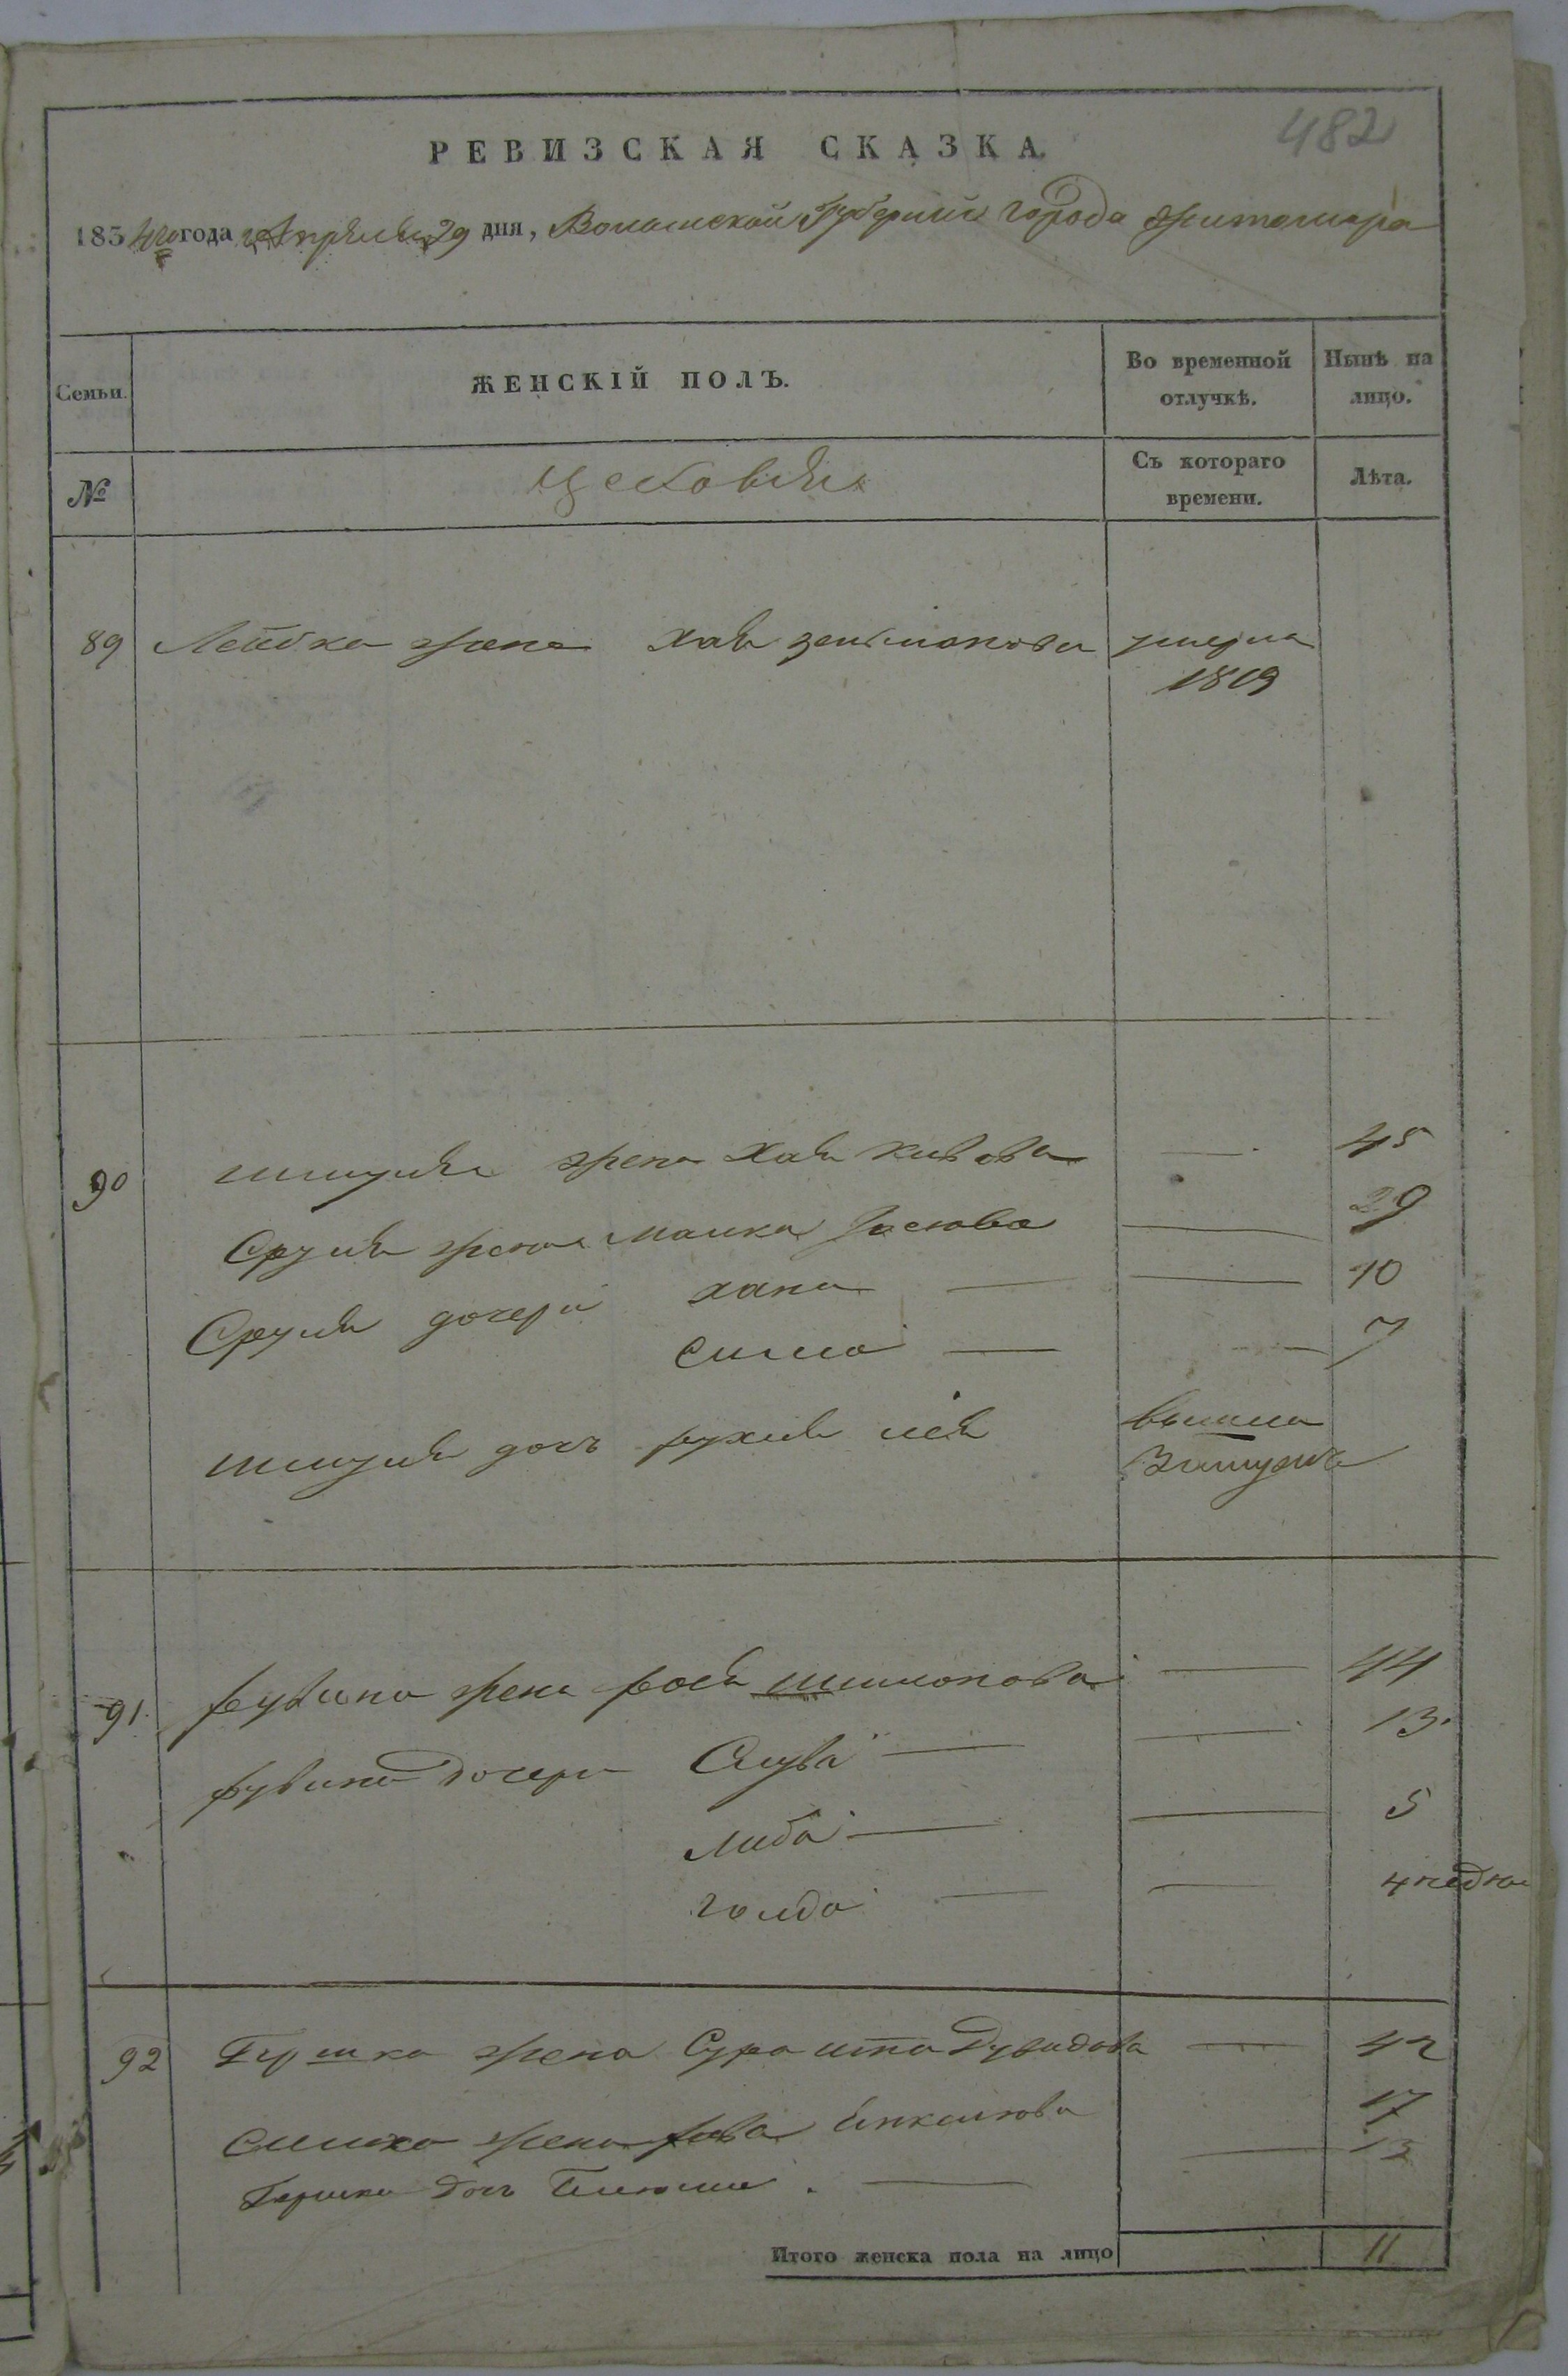 482
РЕВИЗСКАЯ СКАЗКА.
1834го года Апреля 29 дня, Волынской Губернии города Житомира
Семьи. ЖЕНСКІЙ ПОЛЪ. Во временной отлучкѣ. Нынѣ на лицо.
№ Цеховыя Съ котораго времени. Лѣта.
89 Лейбка жена Хая Зельманова умерла
1819
90 Шмуля жена Хая Кивова — 45
Сруля жена Малка Иосева — 29
Сруля дочери Хана — — 10
Сима — — 7
Шмуля дочь Рухля Лея вышла
Замужъ
91 Рувина жена Рося Шимонова — 44
Рувина дочери Слува — — 13
Либа — — 5
Голда — — 4 недел
92 Гершка жена Сура Ита Дувидова — 42
Симха жена Хава 17
Гершка дочь — — 13
Итого женска пола на лицо 11